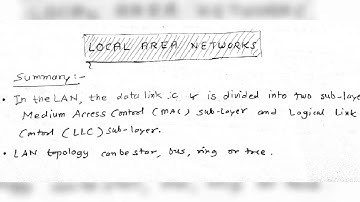 LOCAL AREA NETWORKS
Summary:-
• In the LAN, the data link is divided into two sub-laye
Medium Access Control (MAC) sub-layer and Logical Link
Control (LLC) sub-layer.
• LAN topology can be star, bus, ring or tree.